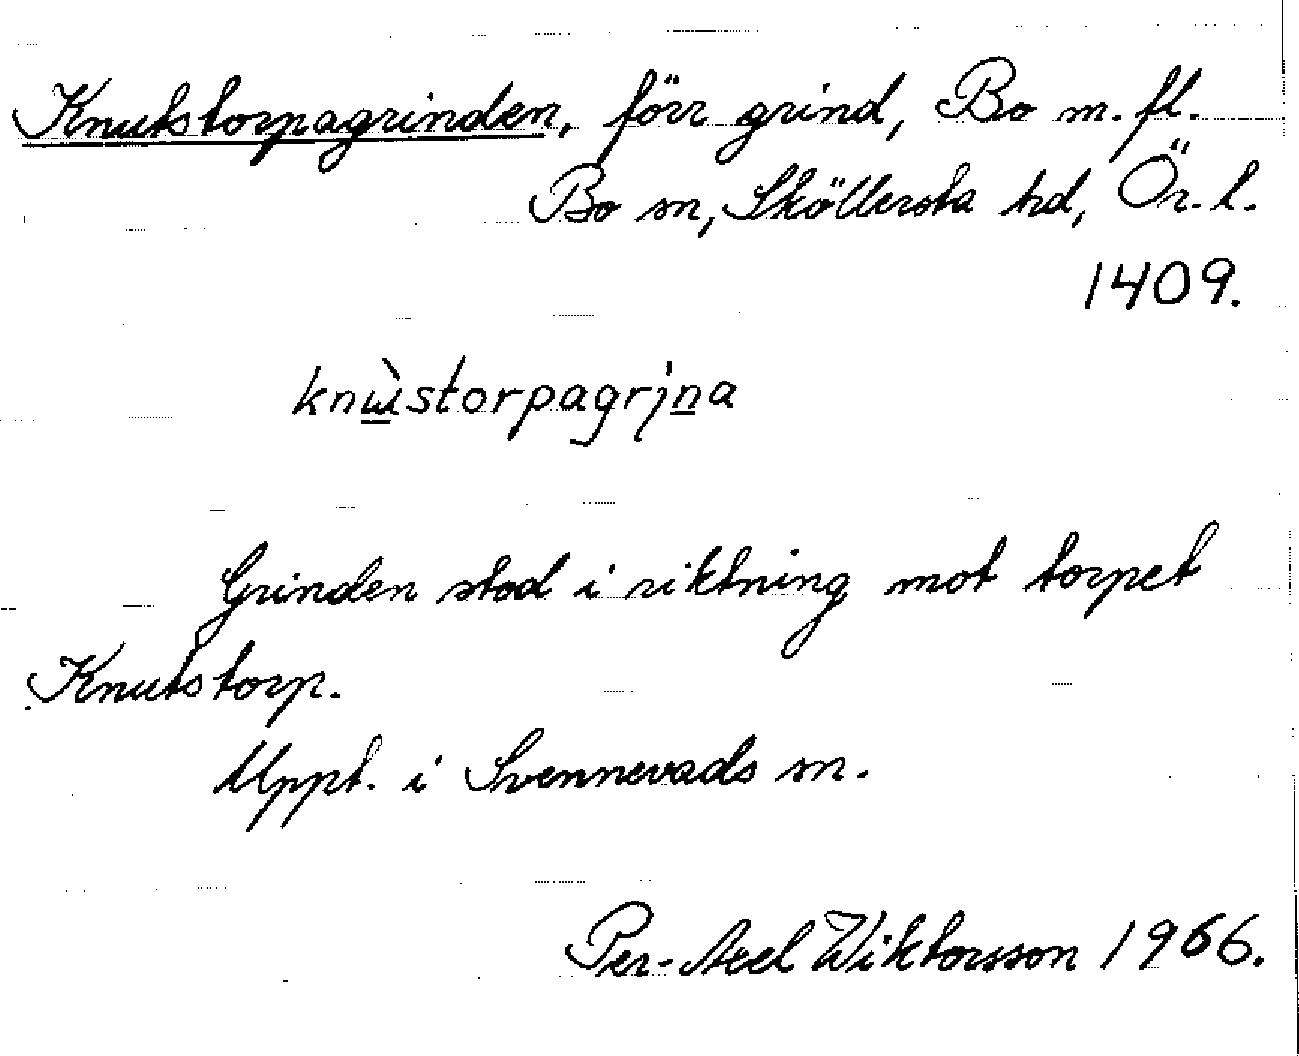 Knutstorpagrinden, förr grind, Bo m. fl.
Bo sn, Sköllersta hd, Ör. l.
1409.
knɯ̀storpagrı̣na
Grinden stod i riktning mot torpet
Knutstorp.
Uppt. i Svennevads sn.
Per-Axel Wiktorsson 1966.